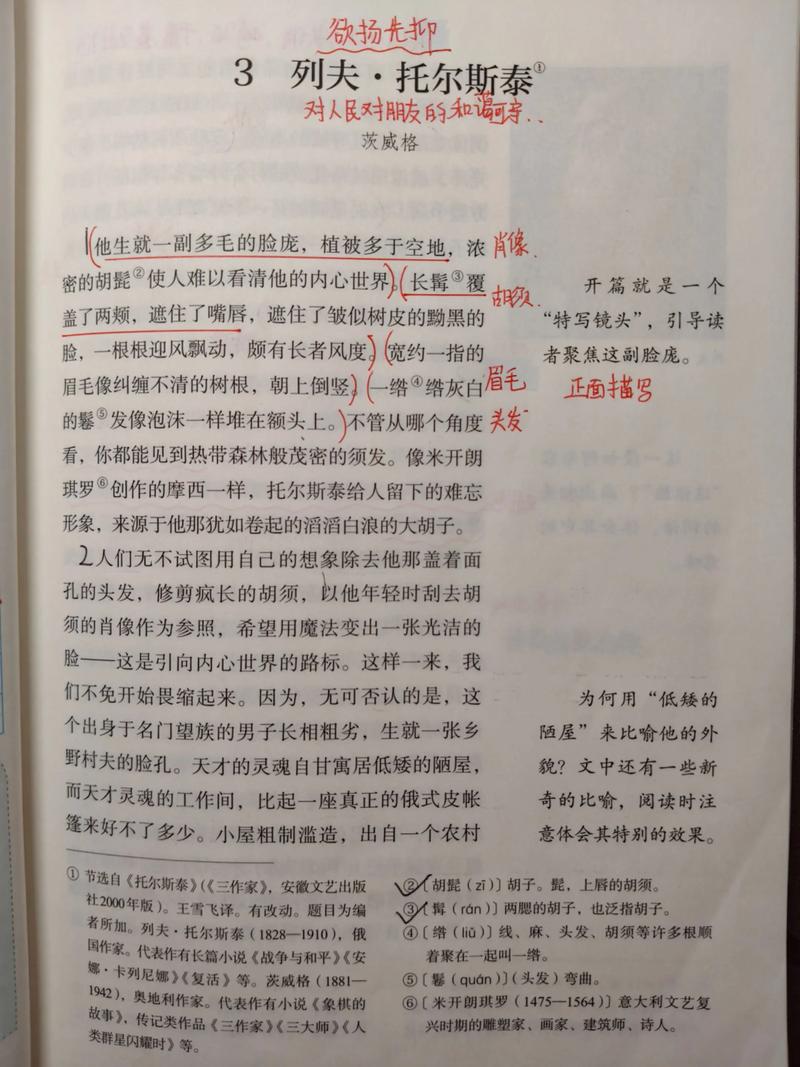 欲扬先抑
3 列夫·托尔斯泰①
对人民对朋友的和蔼可亲..
茨威格
1他生就一副多毛的脸庞，植被多于空地，浓
肖像.
密的胡髭②使人难以看清他的内心世界。长髯③覆
胡须.
盖了两颊，遮住了嘴唇，遮住了皱似树皮的黝黑的
脸，一根根迎风飘动，颇有长者风度。宽约一指的
眉毛像纠缠不清的树根，朝上倒竖。一绺④绺灰白
眉毛
的鬈⑤发像泡沫一样堆在额头上。不管从哪个角度
头发
看，你都能见到热带森林般茂密的须发。像米开朗
琪罗⑥创作的摩西一样，托尔斯泰给人留下的难忘
形象，来源于他那犹如卷起的滔滔白浪的大胡子。
2人们无不试图用自己的想象除去他那盖着面
孔的头发，修剪疯长的胡须，以他年轻时刮去胡
须的肖像作为参照，希望用魔法变出一张光洁的
脸——这是引向内心世界的路标。这样一来，我
们不免开始畏缩起来。因为，无可否认的是，这
个出身于名门望族的男子长相粗劣，生就一张乡
野村夫的脸孔。天才的灵魂自甘寓居低矮的陋屋，
而天才灵魂的工作间，比起一座真正的俄式皮帐
篷来好不了多少。小屋粗制滥造，出自一个农村
开篇就是一个
“特写镜头”，引导读
者聚焦这副脸庞。
正面描写
为何用“低矮的
陋屋”来比喻他的外
貌？文中还有一些新
奇的比喻，阅读时注
意体会其特别的效果。
① 节选自《托尔斯泰》（《三作家》，安徽文艺出版
社2000年版）。王雪飞译。有改动。题目为编
者所加。列夫·托尔斯泰（1828—1910），俄
国作家。代表作有长篇小说《战争与和平》《安
娜·卡列尼娜》《复活》等。茨威格（1881—
1942），奥地利作家。代表作有小说《象棋的
故事》，传记类作品《三作家》《三大师》《人
类群星闪耀时》等。
②〔胡髭（zī）〕胡子。髭，上唇的胡须。
③〔髯（rán）〕两腮的胡子，也泛指胡子。
④〔绺（liǔ）〕线、麻、头发、胡须等许多根顺
着聚在一起叫一绺。
⑤〔鬈（quán）〕（头发）弯曲。
⑥〔米开朗琪罗（1475—1564）〕意大利文艺复
兴时期的雕塑家、画家、建筑师、诗人。